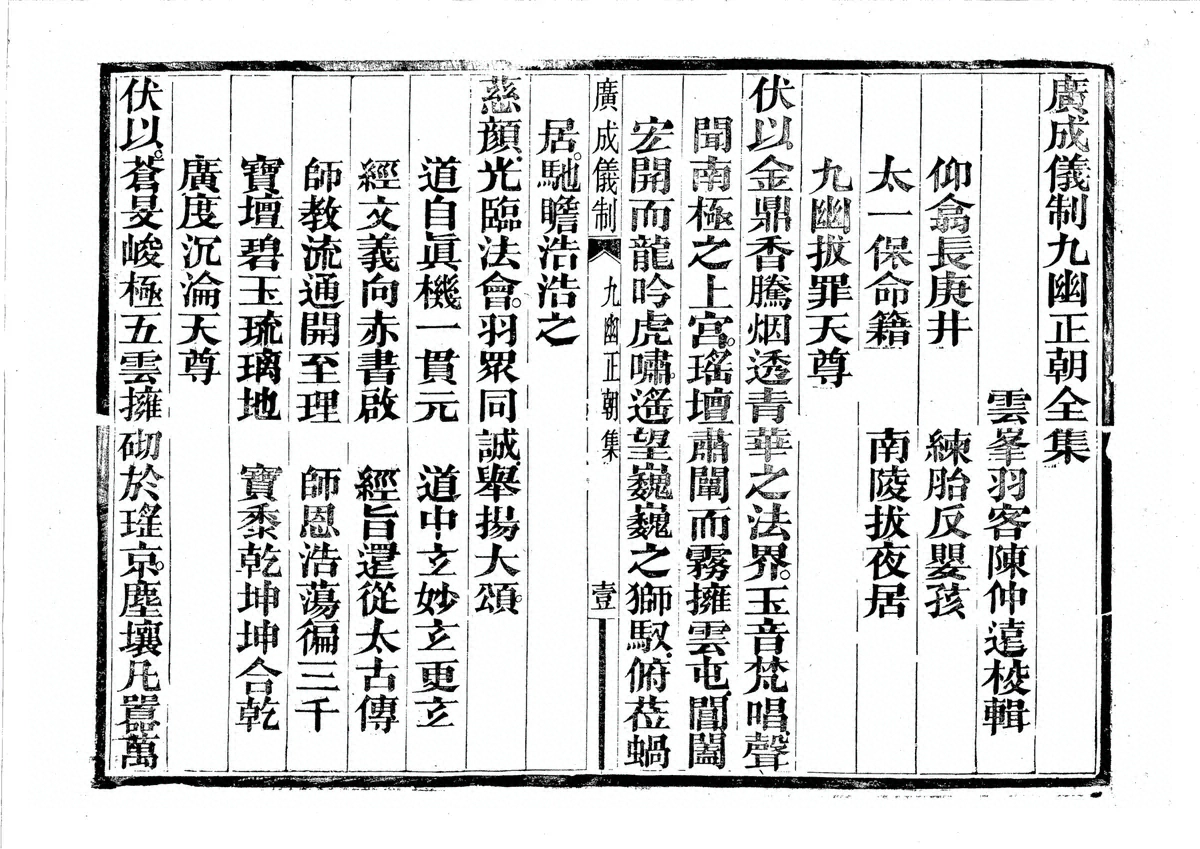 廣成儀制九幽正朝全集
雲峯羽客陳仲遠校輯
仰翕長庚井 練胎反嬰孩
太一保命籍 南陵拔夜居
九幽拔罪天尊
伏以金鼎香騰烟透青華之法界。玉音梵唱聲
聞南極之上宮。瑤壇肅闡而霧擁雲屯閶闔
宏開而龍吟虎嘯。遙望巍巍之獅馭俯莅蝸
居。馳瞻浩浩之
慈顏。光臨法會。羽眾同誠。舉揚大頌。
道自眞機一貫元 道中立妙立更立
經文義向赤書啟 經旨還從太古傳
師教流通開至理 師恩浩蕩徧三千
寶壇碧玉琉璃地 寶黍乾坤坤合乾
廣度沉淪天尊
伏以。蒼旻峻極五雲擁砌於瑤京。塵壤凡囂萬
廣成儀制 九幽正朝集 壹